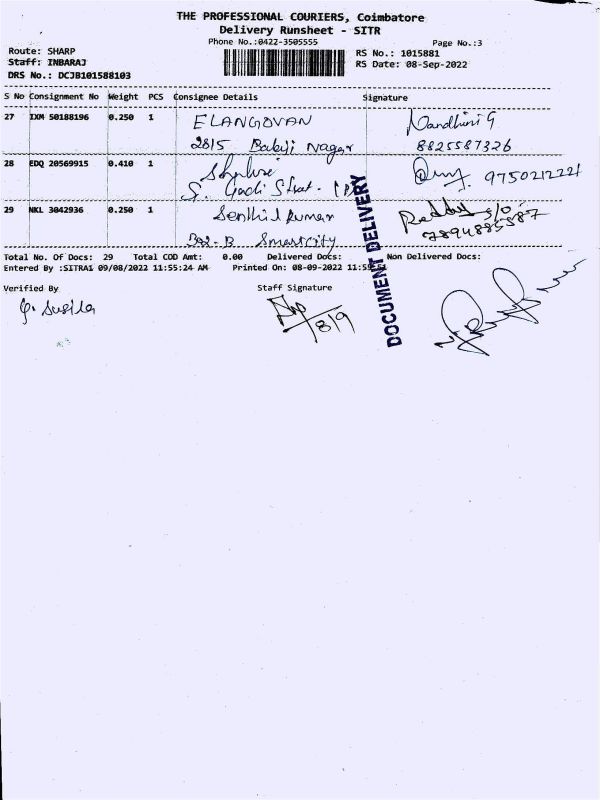 THE PROFESSIONAL COURIERS, Coimbatore
Delivery Runsheet - SITR
Phone No.:0422-3505555 Page No.:3
Route: SHARP RS No.: 1015881
Staff: INBARAJ RS Date: 08-Sep-2022
DRS No.: DCJB101588103
S No Consignment No Weight PCS Consignee Details Signature
27 IXM 50188196 0.250 1 ELANGOVAN Nandhini G
2815 Balaji Nagar 8825587326
28 EDQ 20569915 0.410 1
9750212221
29 NKL 3042936 0.250 1 Senthil kumar Reddy s/o
302-B Smartcity 7894885587
Total No. Of Docs: 29 Total COD Amt: 0.00 Delivered Docs: Non Delivered Docs:
Entered By :SITRA1 09/08/2022 11:55:24 AM Printed On: 08-09-2022 11:59:51
DOCUMENT DELIVERY
Verified By Staff Signature
G. Susila
8/9